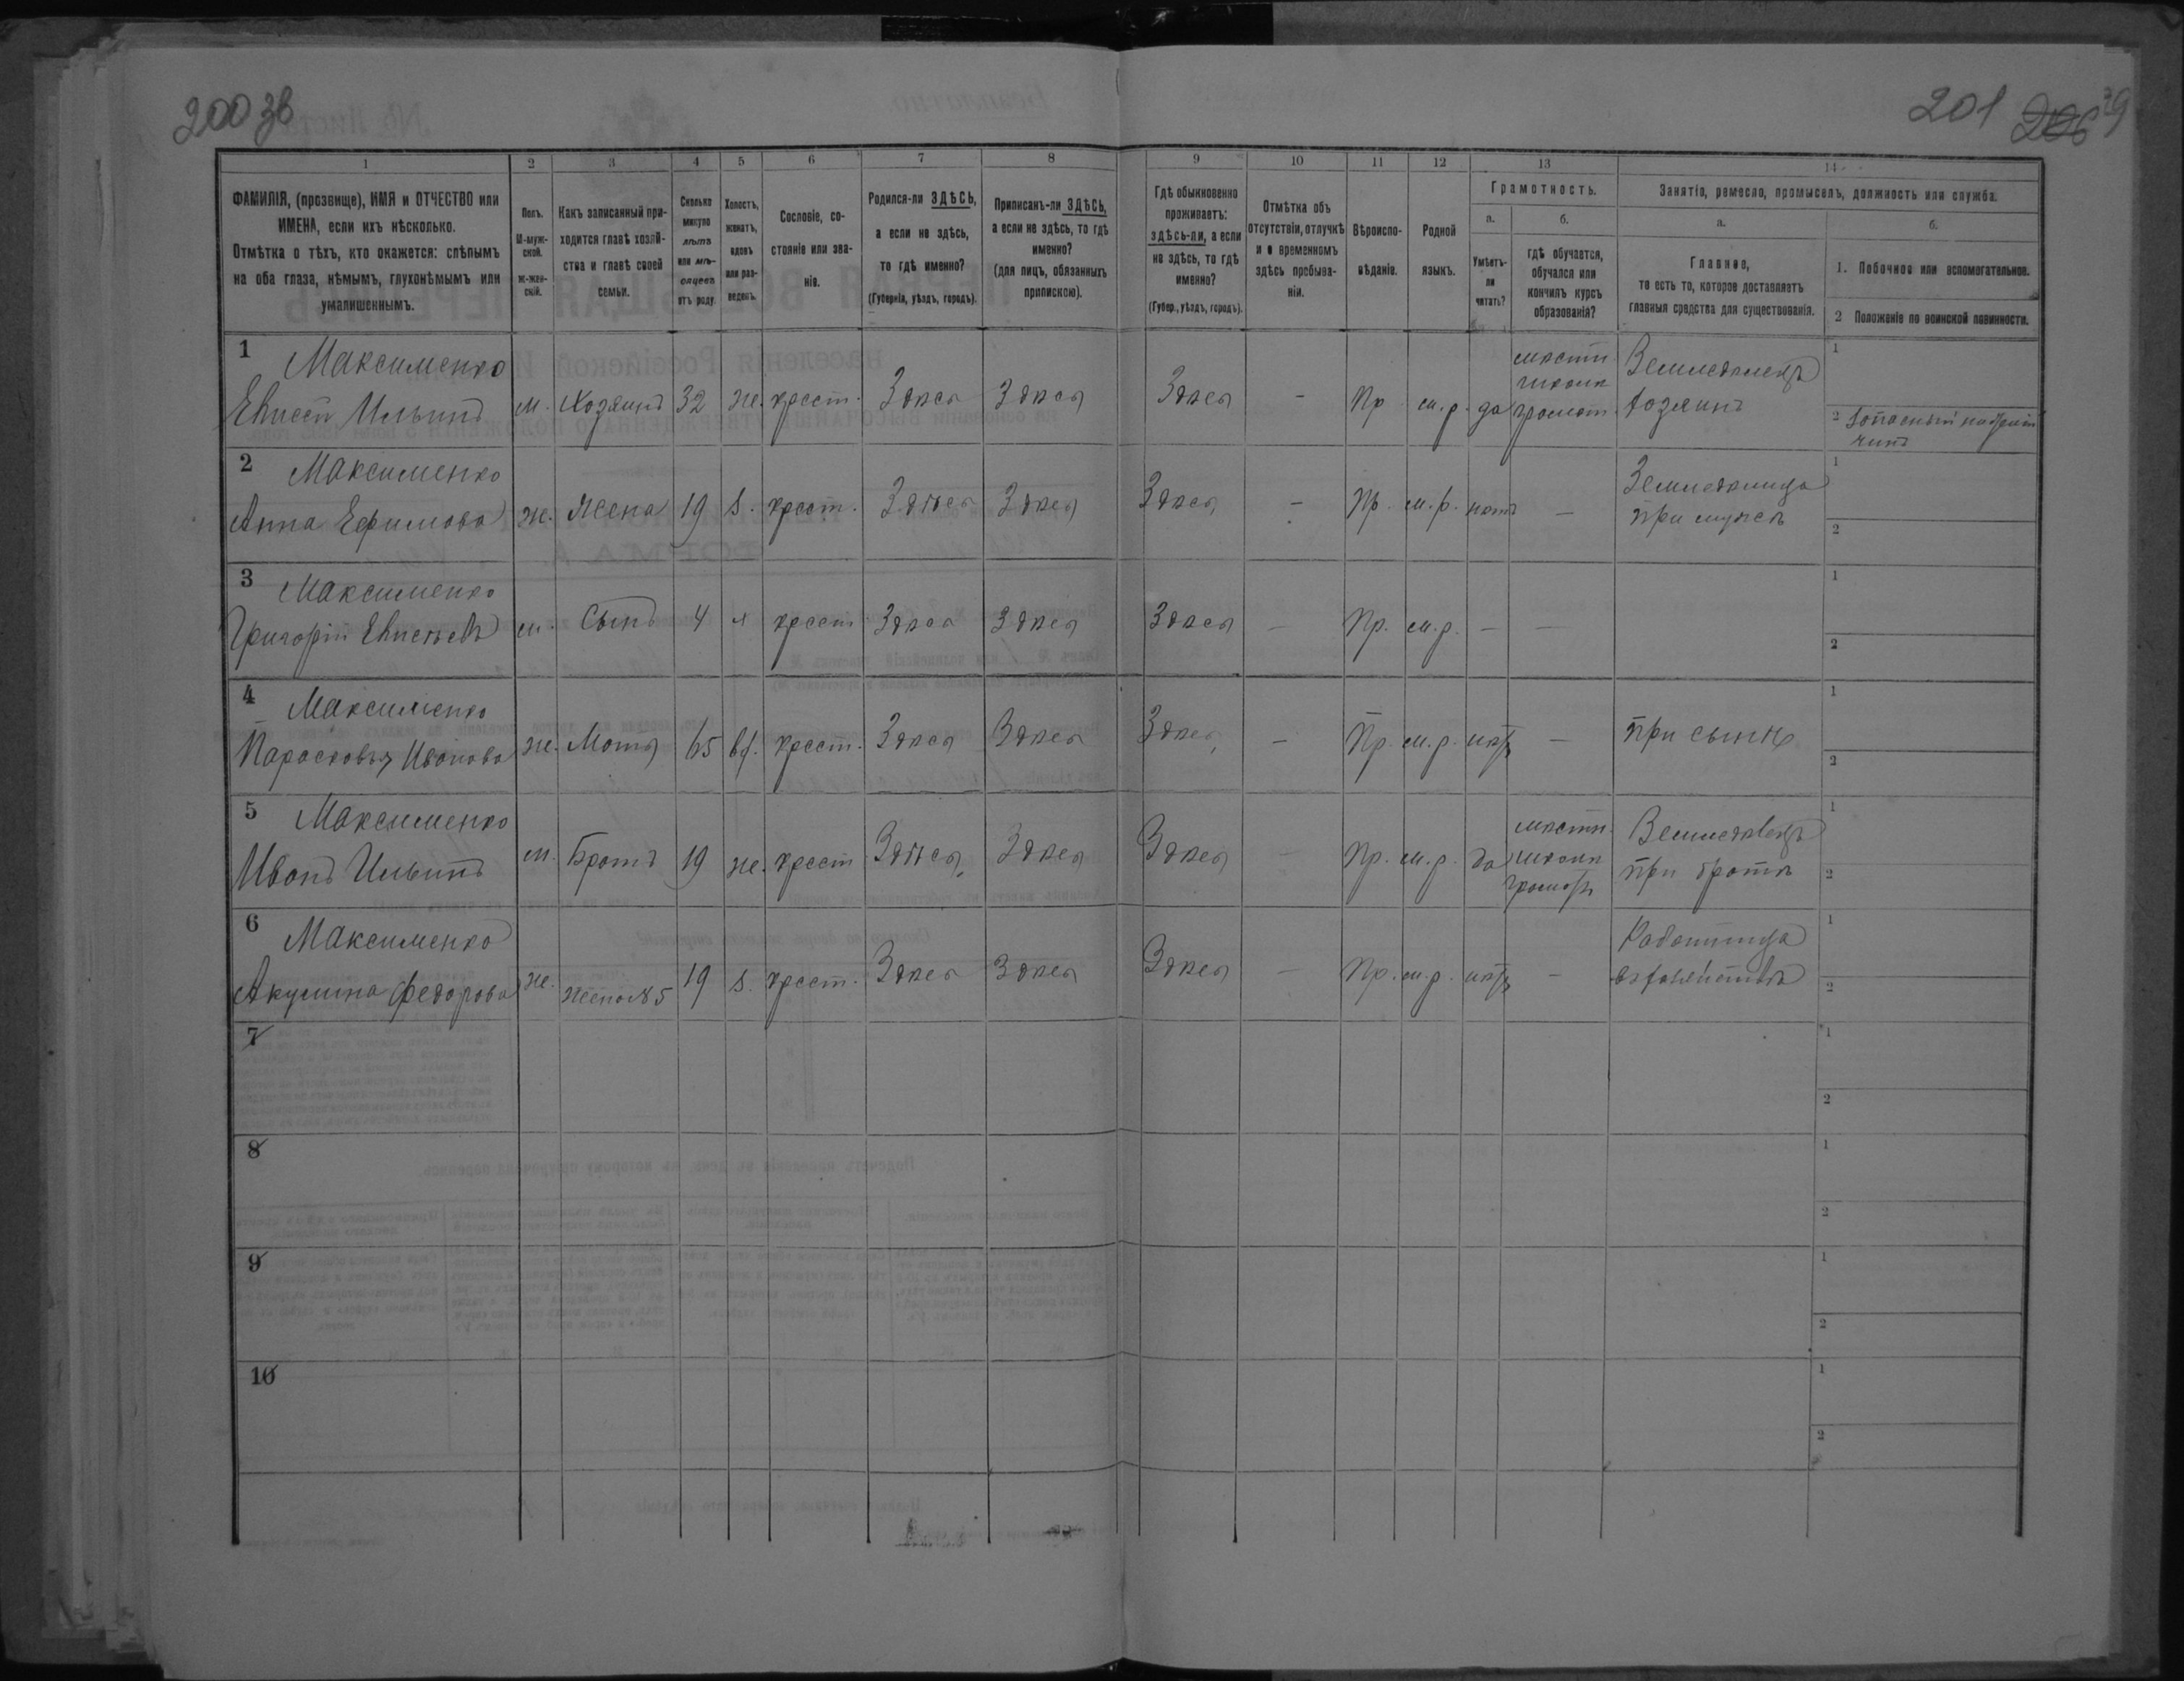 200 зв
201 206 39
1 2 3 4 5 6 7 8 9 10 11 12 13 14
ФАМИЛІЯ, (прозвище), ИМЯ и ОТЧЕСТВО или
ИМЕНА, если ихъ нѣсколько.
Отмѣтка о тѣхъ, кто окажется: слѣпымъ
на оба глаза, нѣмымъ, глухонѣмымъ или
умалишеннымъ.
Полъ.
М-муж-
ской.
Ж-жен-
скій.
Какъ записанный при-
ходится главѣ хозяй-
ства и главѣ своей
семьи.
Сколько
минуло
лѣтъ
или мѣ-
сяцевъ
отъ роду.
Холостъ,
женатъ,
вдовъ
или раз-
веденъ.
Сословіе, со-
стояніе или зва-
ніе.
Родился-ли ЗДѢСЬ,
а если не здѣсь,
то гдѣ именно?
(Губернія, уѣздъ, городъ).
Приписанъ-ли ЗДѢСЬ,
а если не здѣсь, то гдѣ
именно?
(для лицъ, обязанныхъ
припискою).
Гдѣ обыкновенно
проживаетъ:
здѣсь-ли, а если
не здѣсь, то гдѣ
именно?
(Губер., уѣздъ, городъ).
Отмѣтка объ
отсутствіи, отлучкѣ
и о временномъ
здѣсь пребыва-
ніи.
Вѣроиспо-
вѣданіе.
Родной
языкъ.
Грамотность.
а.
Умѣетъ-
ли
читать?
б.
гдѣ обучается,
обучался или
кончилъ курсъ
образованія?
Занятіе, ремесло, промыселъ, должность или служба.
а.
Главное,
то есть то, которое доставляетъ
главныя средства для существованія.
б.
1. Побочное или вспомогательное.
2 Положеніе по воинской повинности.
1 Максименко мѣстн. Земледѣлецъ 1
школа
Евисей Ильинъ м. Хозяинъ 32 же. крест. Здѣсь Здѣсь Здѣсь - Пр м.р. да грамот. хозяинъ 2 Запасный
чинъ
2 Максименко Земледѣлица 1
Анна Ефимова же. Жена 19 з. крест. Здѣсь Здѣсь Здѣсь - Пр. м.р. нѣтъ - при мужѣ 2
3 Максименко 1
Григорій Евисѣевъ м. Сынъ 4 х крест. Здѣсь Здѣсь Здѣсь - Пр. м.р. - - 2
4 Максименко 1
Парасковья Иванова же. Мать 65 вд. крест. Здѣсь Здѣсь Здѣсь - Пр. м.р. нѣтъ - при сынѣ 2
5 Максименко мѣстн. Земледѣлецъ 1
Иванъ Ильинъ м. Братъ 19 же. крест Здѣсь Здѣсь Здѣсь - Пр. м.р. да школа при братѣ 2
грамотъ
6 Максименко Работница 1
Акулина Федорова же. жена №5 19 з. крест. Здѣсь Здѣсь Здѣсь - Пр. м.р. нѣтъ - въ хозяйствѣ 2
7 1
2
8 1
2
9 1
2
10 1
2